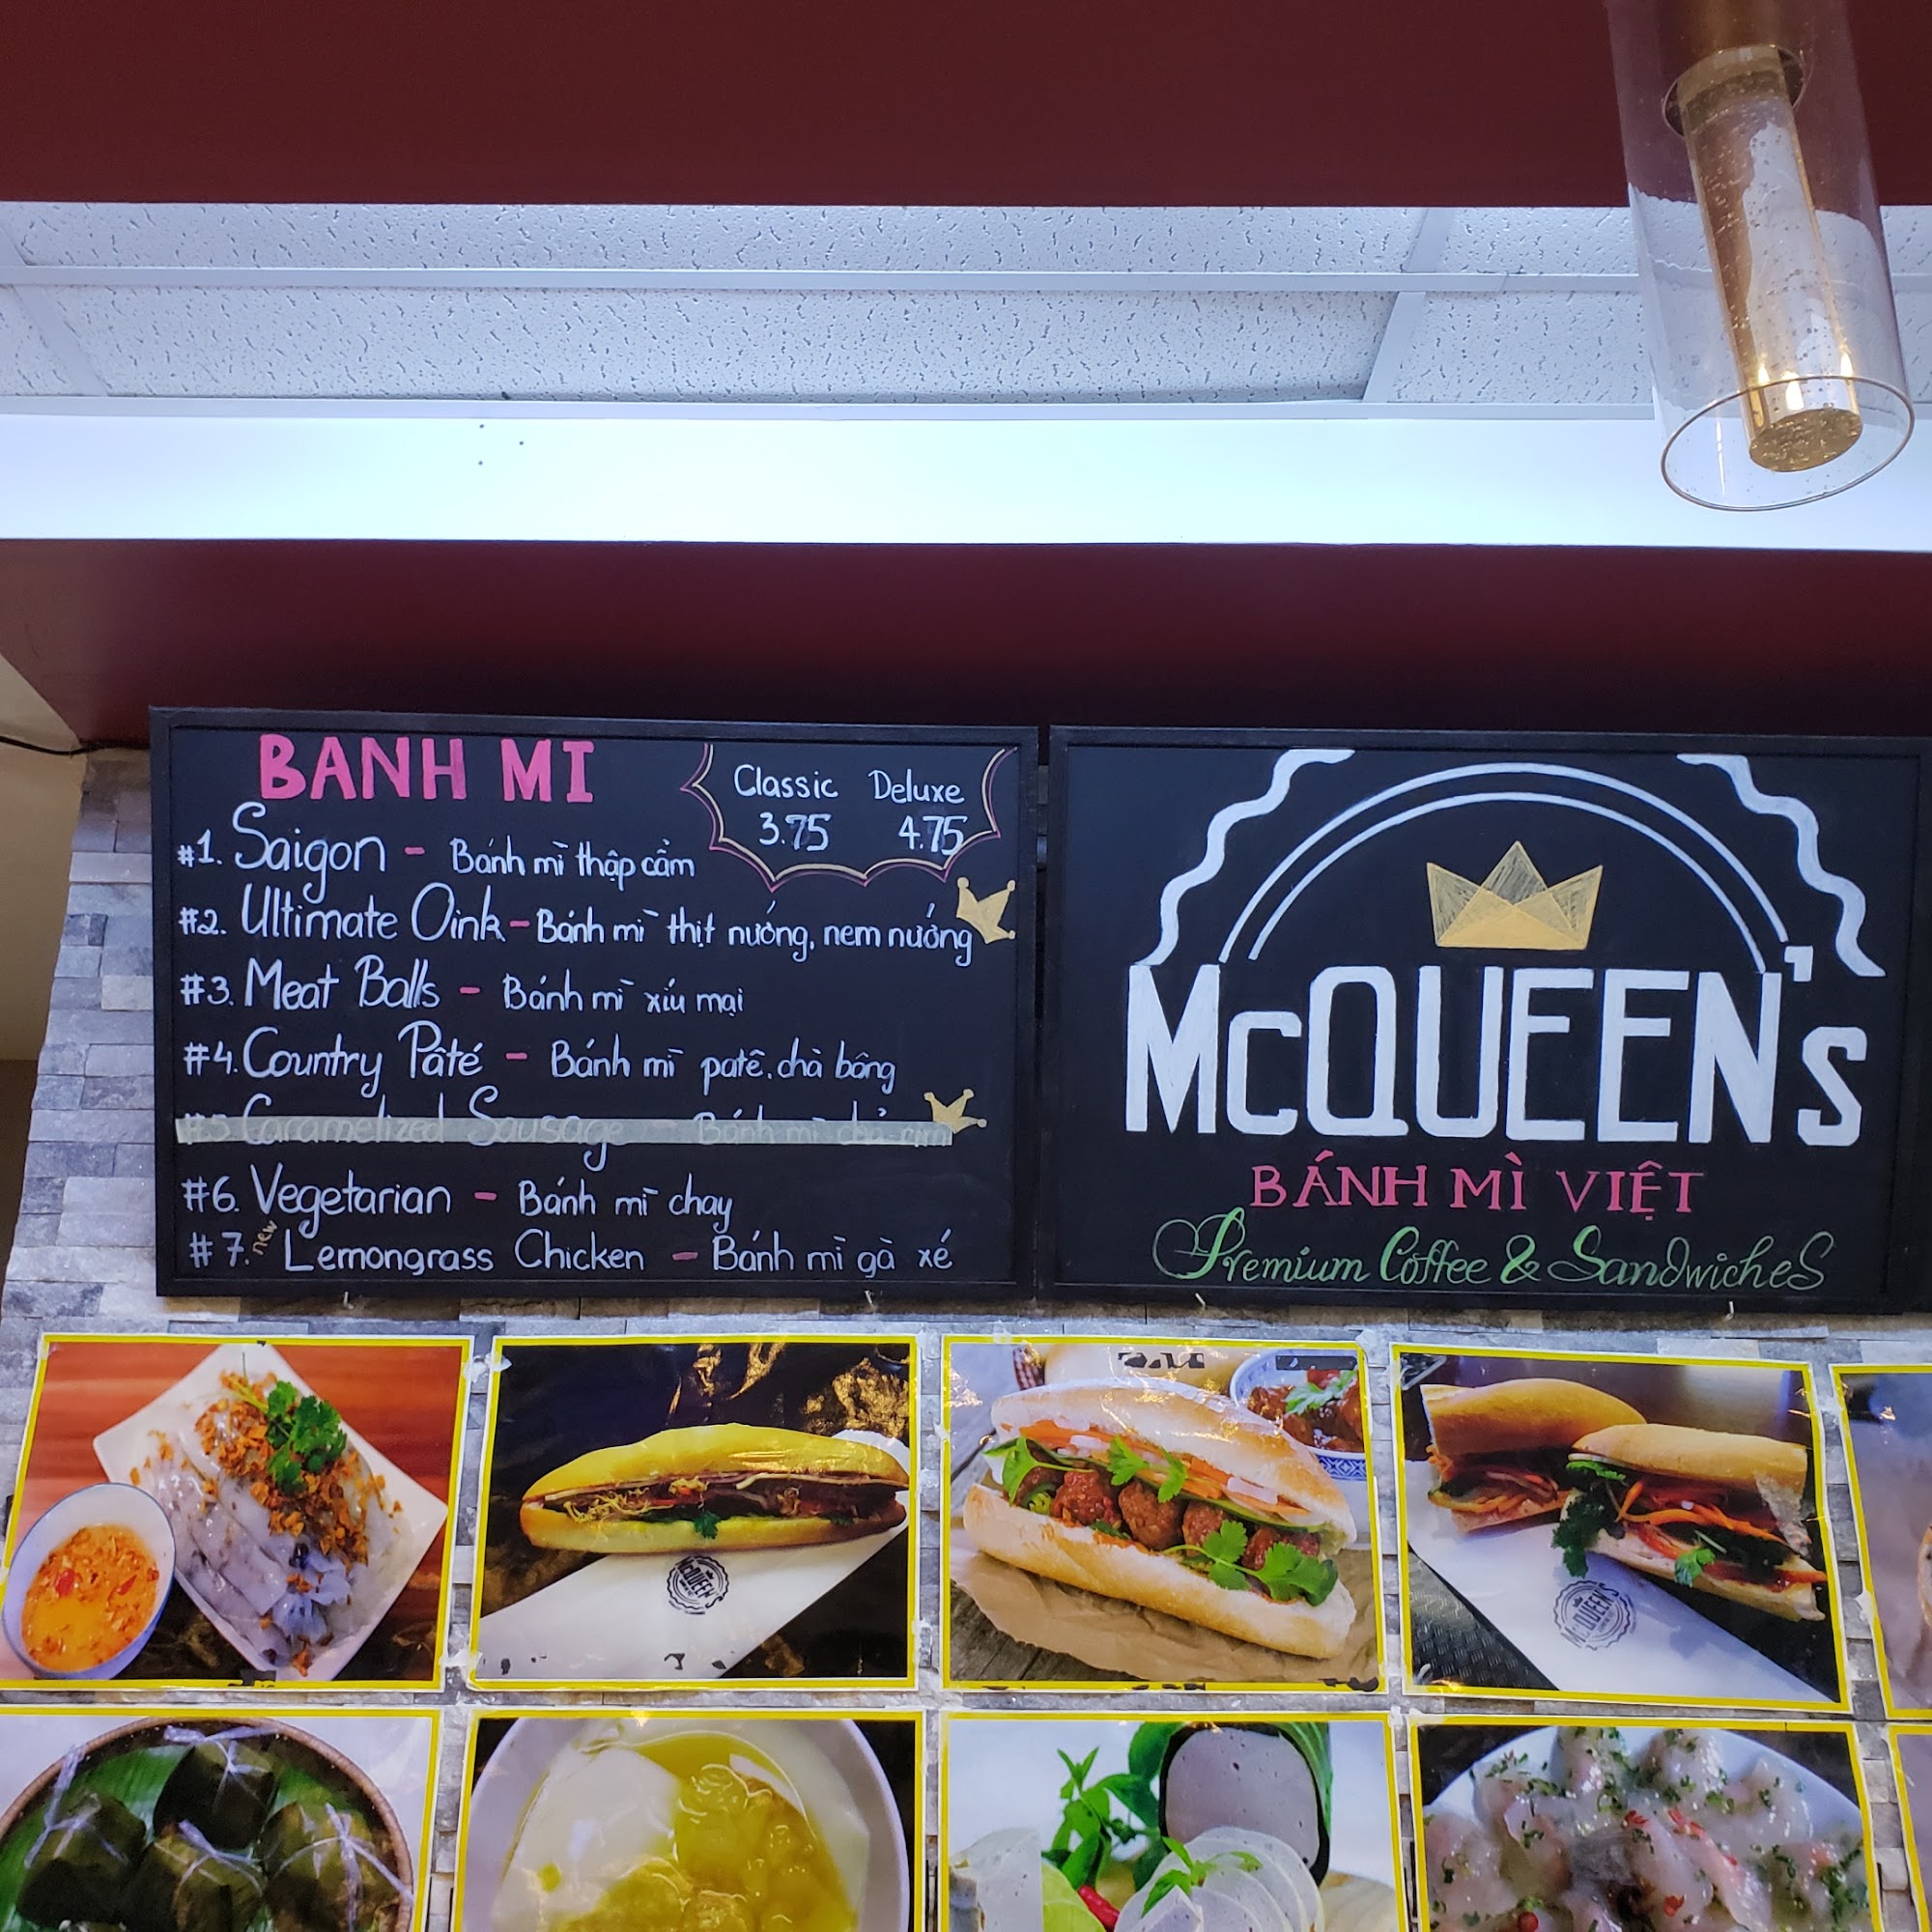 BANH MI
Classic Deluxe
3.75 4.75
#1. Saigon - Bánh mì thập cẩm
#2. Ultimate Oink - Bánh mì thịt nướng, nem nướng
#3. Meat Balls - Bánh mì xíu mại
#4. Country Pâté - Bánh mì patê, chà bông
#5 Caramelized Sausage - Bánh mì chả
#6. Vegetarian - Bánh mì chay
#7. new Lemongrass Chicken - Bánh mì gà xé
McQUEEN's
BÁNH MÌ VIỆT
Premium Coffee & Sandwiches
McQUEEN'S
McQUEEN'S